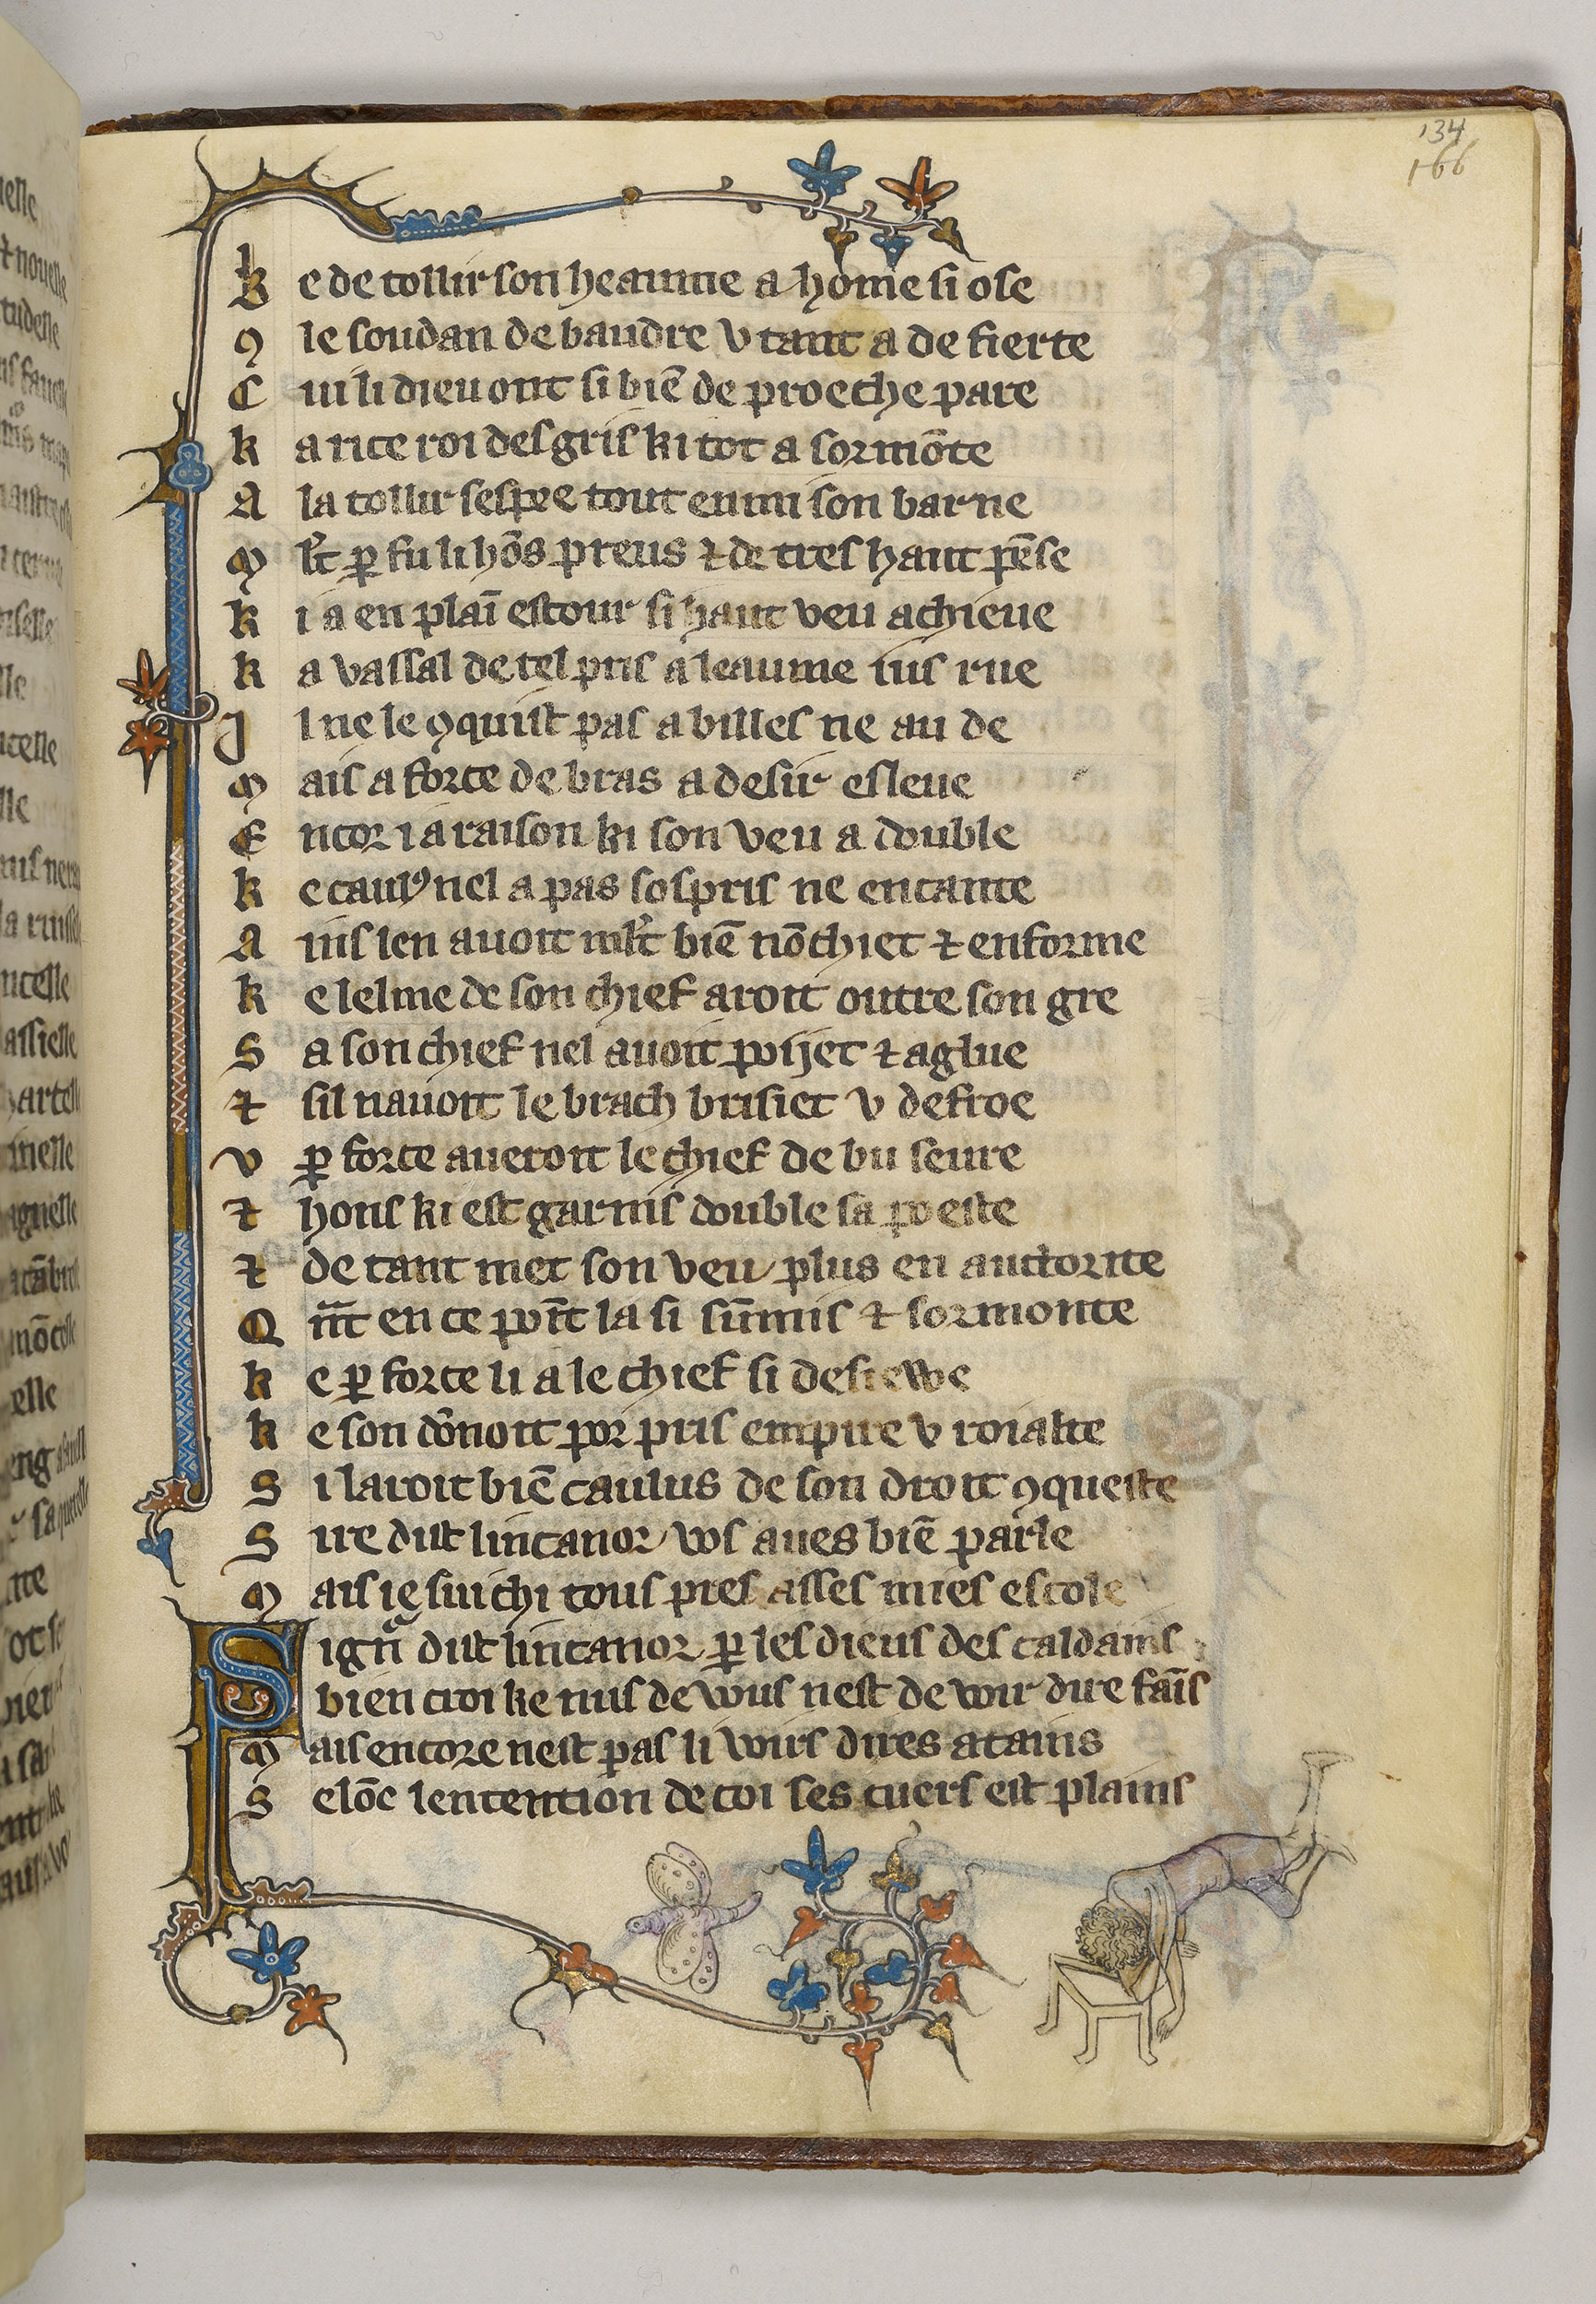 134
166
K e de tollir son heaume a home si ose
9 le soudan de baudre v tant a de fierte
C ui li dieu ont si biē de proeche pare
K a rice roi des gris ki tot a sormōte
A la tollir sespee tout enmi son barne
M lt̄ ꝑ fu li hōs preus ⁊ de tres haut pēse
K i a en plaī estour si haut veu achieue
K a vassal de tel pris a leaume ius rue
J l ne le ꝯquist pas a billes ne au de
M ais a force de bras a desir esleue
E ncor i a raison ki son veu a double
K e caulꝰ nel a pas sospris ne encante
A ins len auoit mlt̄ biē nōchiet ⁊ enforme
K e lelme de son chief aroit outre son gre
S a son chief nel auoit poijet ⁊ aglue
⁊ sil nauoit le brach brisiet v defroe
V ꝑ force aueroit le chief de bu seure
⁊ hons ki est garnis double sa poeste
⁊ de tant met son veu plus en auctorite
Q n̄t en ce poīt la si sūmis ⁊ sormonte
K e ꝑ force li a le chief si desiewe
K e son dōnoit por pris empire v roialte
S i laroit biē caulus de son droit ꝯqueste
S ire dist lincanor vos aues biē parle
M ais ie sui chi tous pres asses mies escole
S ign̄ dist lincanor ꝑ les dieus des caldains
bien croi ke nus de wus nest de voir dire faīs
M ais encore nest pas li voirs dires atains
S elōc lentention de toi ses cuers est plains